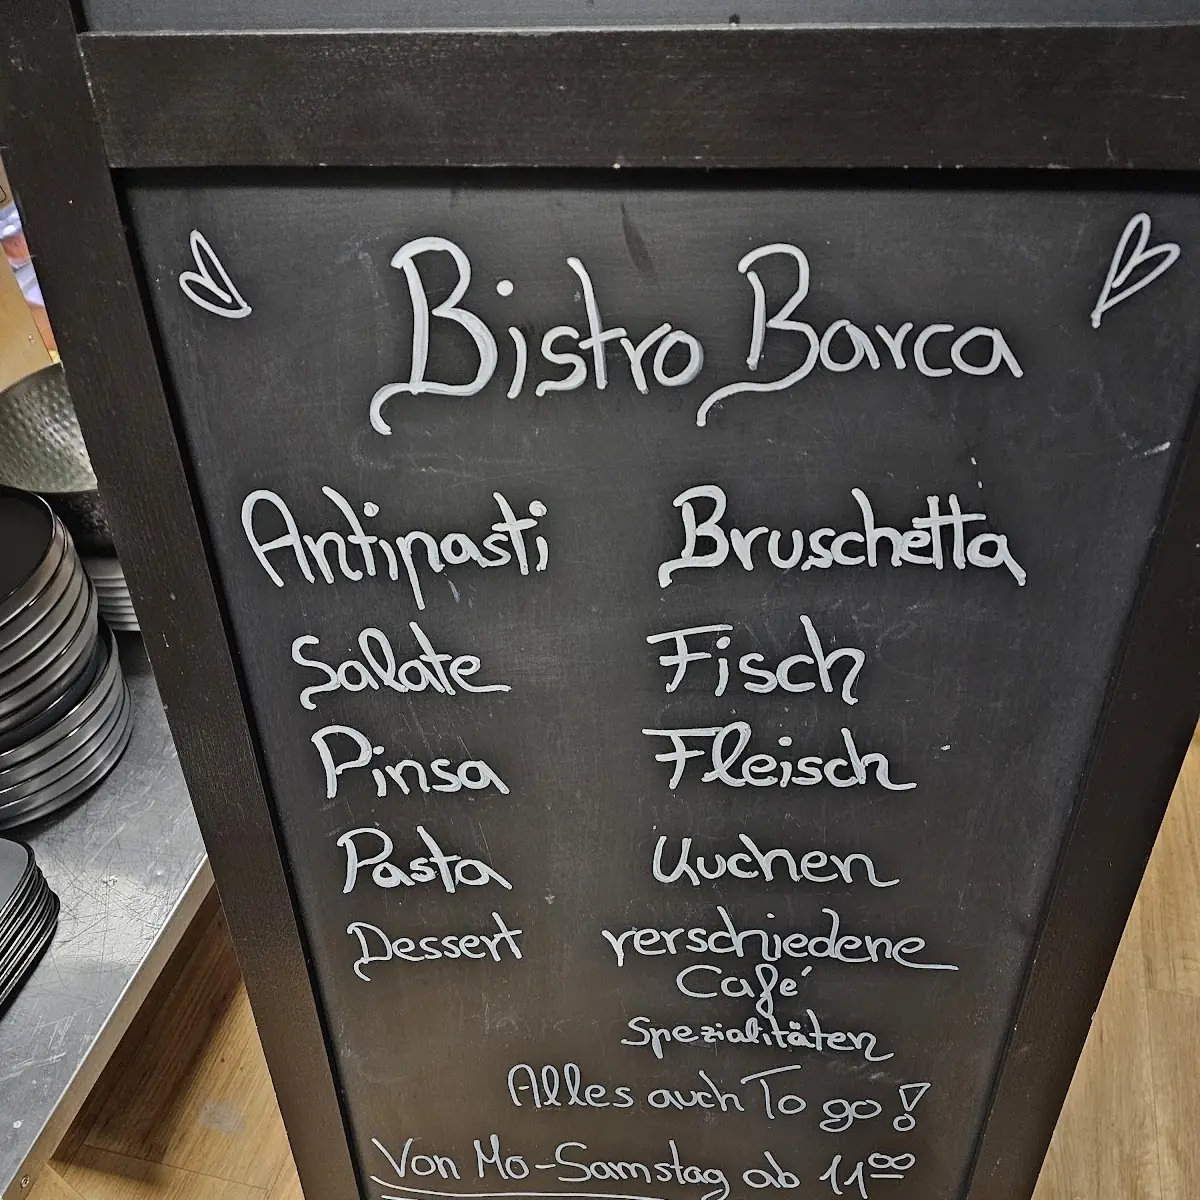 Bistro Barca
Antipasti Bruschetta
Salate Fisch
Pinsa Fleisch
Pasta Kuchen
Dessert verschiedene
Café
Spezialitäten
Alles auch To go!
Von Mo-Samstag ab 11⁰⁰